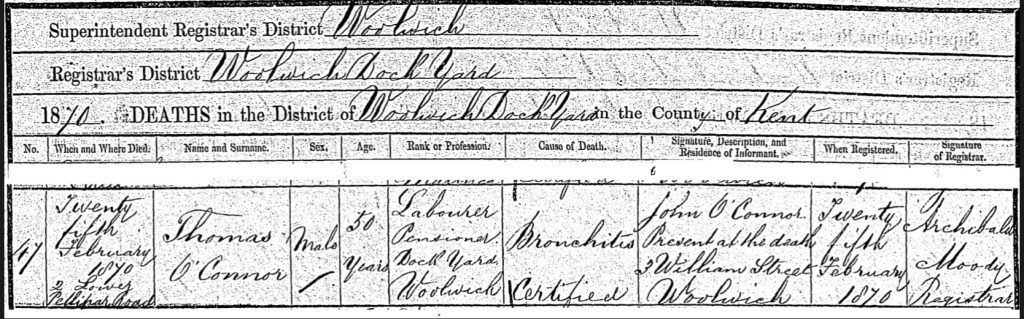 Superintendent Registrar's District Woolwich
Registrar's District Woolwich Dock Yard
1870. DEATHS in the District of Woolwich Dock Yard in the County of Kent
No. When and Where Died. Name and Surname. Sex. Age. Rank or Profession. Cause of Death. Signature, Description, and Residence of Informant. When Registered. Signature of Registrar.
47
Twenty
fifth
February
1870
2 Lower
Pellipar Road
Thomas
O'Connor
Male
50
Years
Labourer
Pensioner.
Dock Yard
Woolwich
Bronchitis
Certified
John O'Connor.
Present at the death
3 William Street
Woolwich
Twenty
fifth
February
1870
Archibald
Moody
Registrar